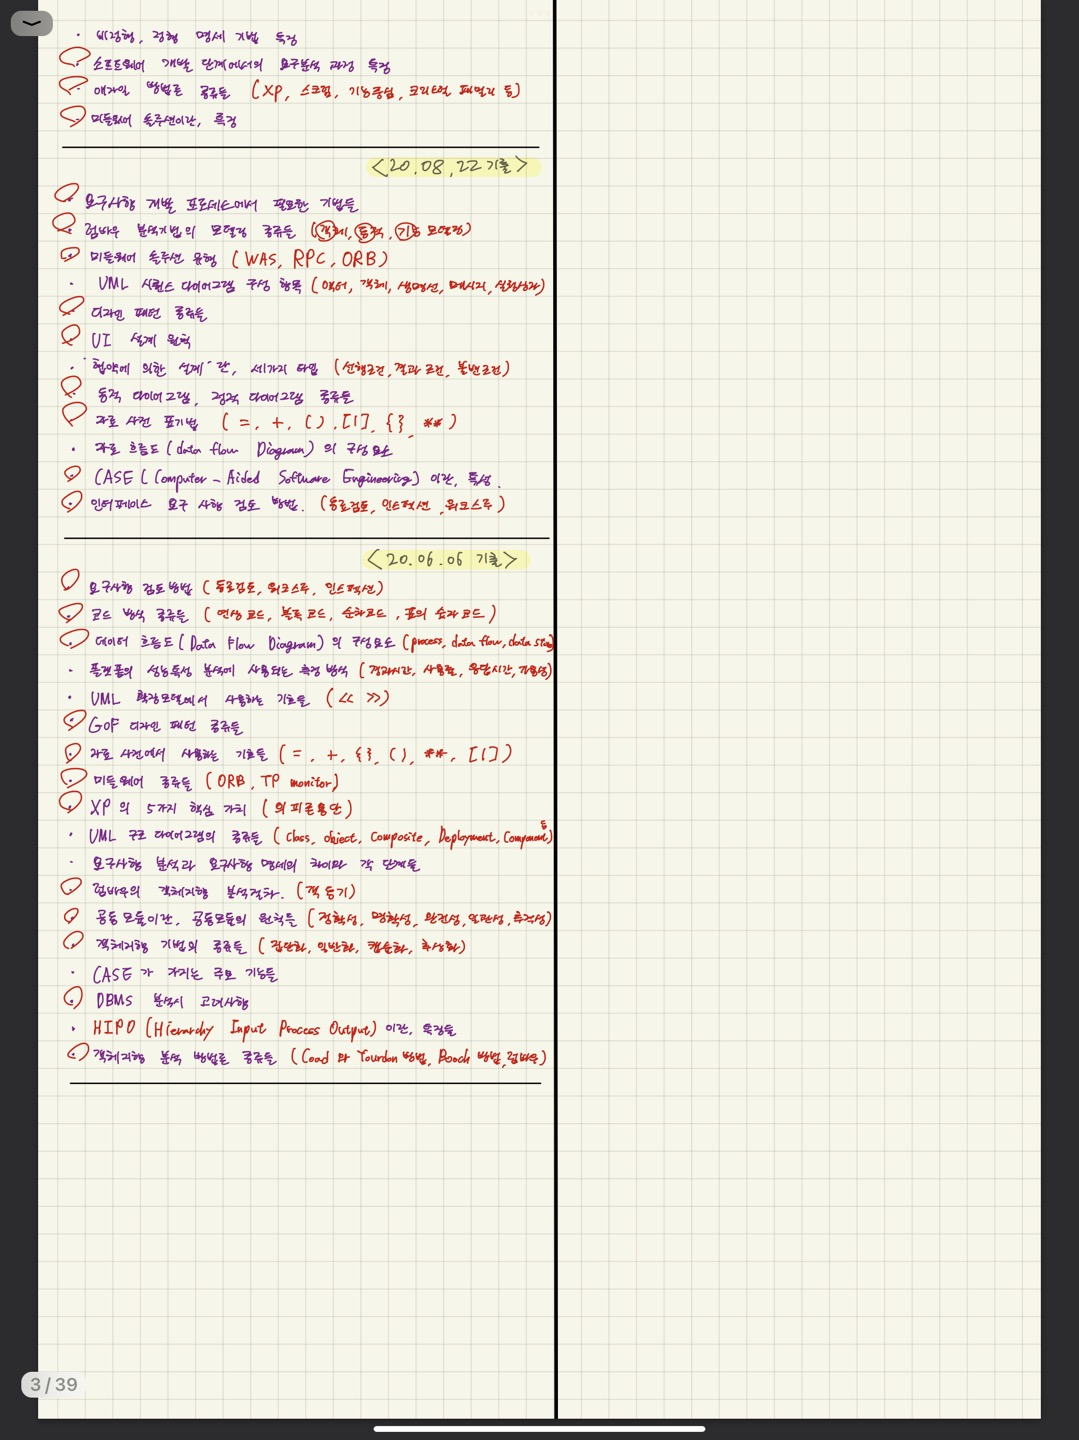 · 비정형, 정형 명세 기법 특징
· 소프트웨어 개발 단계에서의 요구분석 과정 특징
· 애자일 방법론 종류들 (XP, 스크럼, 기능중심, 크리스털 패밀리 등)
· 미들웨어 솔루션이란, 특징
<20.08.22 기출>
· 요구사항 개발 프로세스에서 필요한 기법들
· 럼바우 분석기법의 모델링 종류들 (객체, 동적, 기능 모델링)
· 미들웨어 솔루션 유형 (WAS, RPC, ORB)
· UML 시퀀스 다이어그램 구성 항목 (액터, 객체, 생명선, 메시지, 실행상자)
· 디자인 패턴 종류들
· UI 설계 원칙
· '협약에 의한 설계'란, 세가지 타입 (선행조건, 결과조건, 불변조건)
· 동적 다이어그램, 정적 다이어그램 종류들
· 자료 사전 표기법 ( =, +, ( ), [|], { }, ** )
· 자료 흐름도 (data flow Diagram) 의 구성요소
· CASE (Computer - Aided Software Engineering) 이란, 특성.
· 인터페이스 요구 사항 검토 방법. (동료검토, 인스펙션, 워크스루)
<20.06.06 기출>
· 요구사항 검토방법 (동료검토, 워크스루, 인스펙션)
· 코드 방식 종류들 (연상 코드, 블록 코드, 순차코드, 표의 숫자 코드)
· 데이터 흐름도 (Data Flow Diagram) 의 구성요소 (process, data flow, data store)
· 플랫폼의 성능특성 분석에 사용되는 측정 방식 (경과시간, 사용률, 응답시간, 가용성)
· UML 확장모델에서 사용하는 기호들 (<< >>)
· GoF 디자인 패턴 종류들
· 자료 사전에서 사용하는 기호들 ( =, +, { }, ( ), **, [|] )
· 미들웨어 종류들 (ORB, TP monitor)
· XP 의 5가지 핵심 가치 (의피존용단)
· UML 구조 다이어그램의 종류들 (class, object, composite, Deployment, Component 등)
· 요구사항 분석과 요구사항 명세의 차이와 각 단계들
· 럼바우의 객체지향 분석절차. (객 동 기)
· 공통 모듈이란, 공통모듈의 원칙들 (정확성, 명확성, 완전성, 일관성, 추적성)
· 객체지향 기법의 종류들 (집단화, 일반화, 캡슐화, 추상화)
· CASE 가 가지는 주요 기능들
· DBMS 분석시 고려사항
· HIPO (Hierarchy Input Process Output) 이란, 특징들
· 객체지향 분석 방법론 종류들 (Coad 와 Yourdon 방법, Booch 방법, 럼바우)
3/39